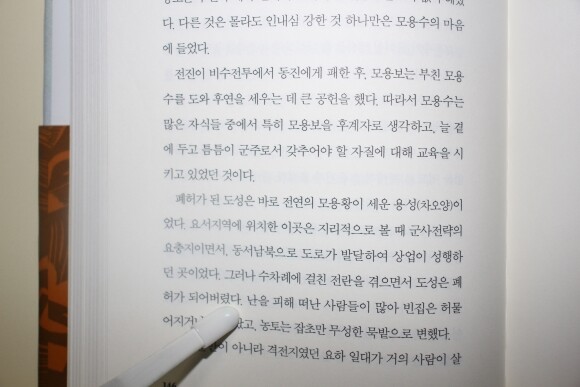 다. 다른 것은 몰라도 인내심 강한 것 하나만은 모용수의 마음
에 들었다.
전진이 비수전투에서 동진에게 패한 후, 모용보는 부친 모용
수를 도와 후연을 세우는 데 큰 공헌을 했다. 따라서 모용수는
많은 자식들 중에서 특히 모용보을 후계자로 생각하고, 늘 곁
에 두고 틈틈이 군주로서 갖추어야 할 자질에 대해 교육을 시
키고 있었던 것이다.
폐허가 된 도성은 바로 전연의 모용황이 세운 용성(차오양)이
었다. 요서지역에 위치한 이곳은 지리적으로 볼 때 군사전략의
요충지이면서, 동서남북으로 도로가 발달하여 상업이 성행하
던 곳이었다. 그러나 수차례에 걸친 전란을 겪으면서 도성은 폐
허가 되어버렸다. 난을 피해 떠난 사람들이 많아 빈집은 허물
어지거 농토는 잡초만 무성한 묵밭으로 변했다.
아니라 격전지였던 요하 일대가 거의 사람이 살
146